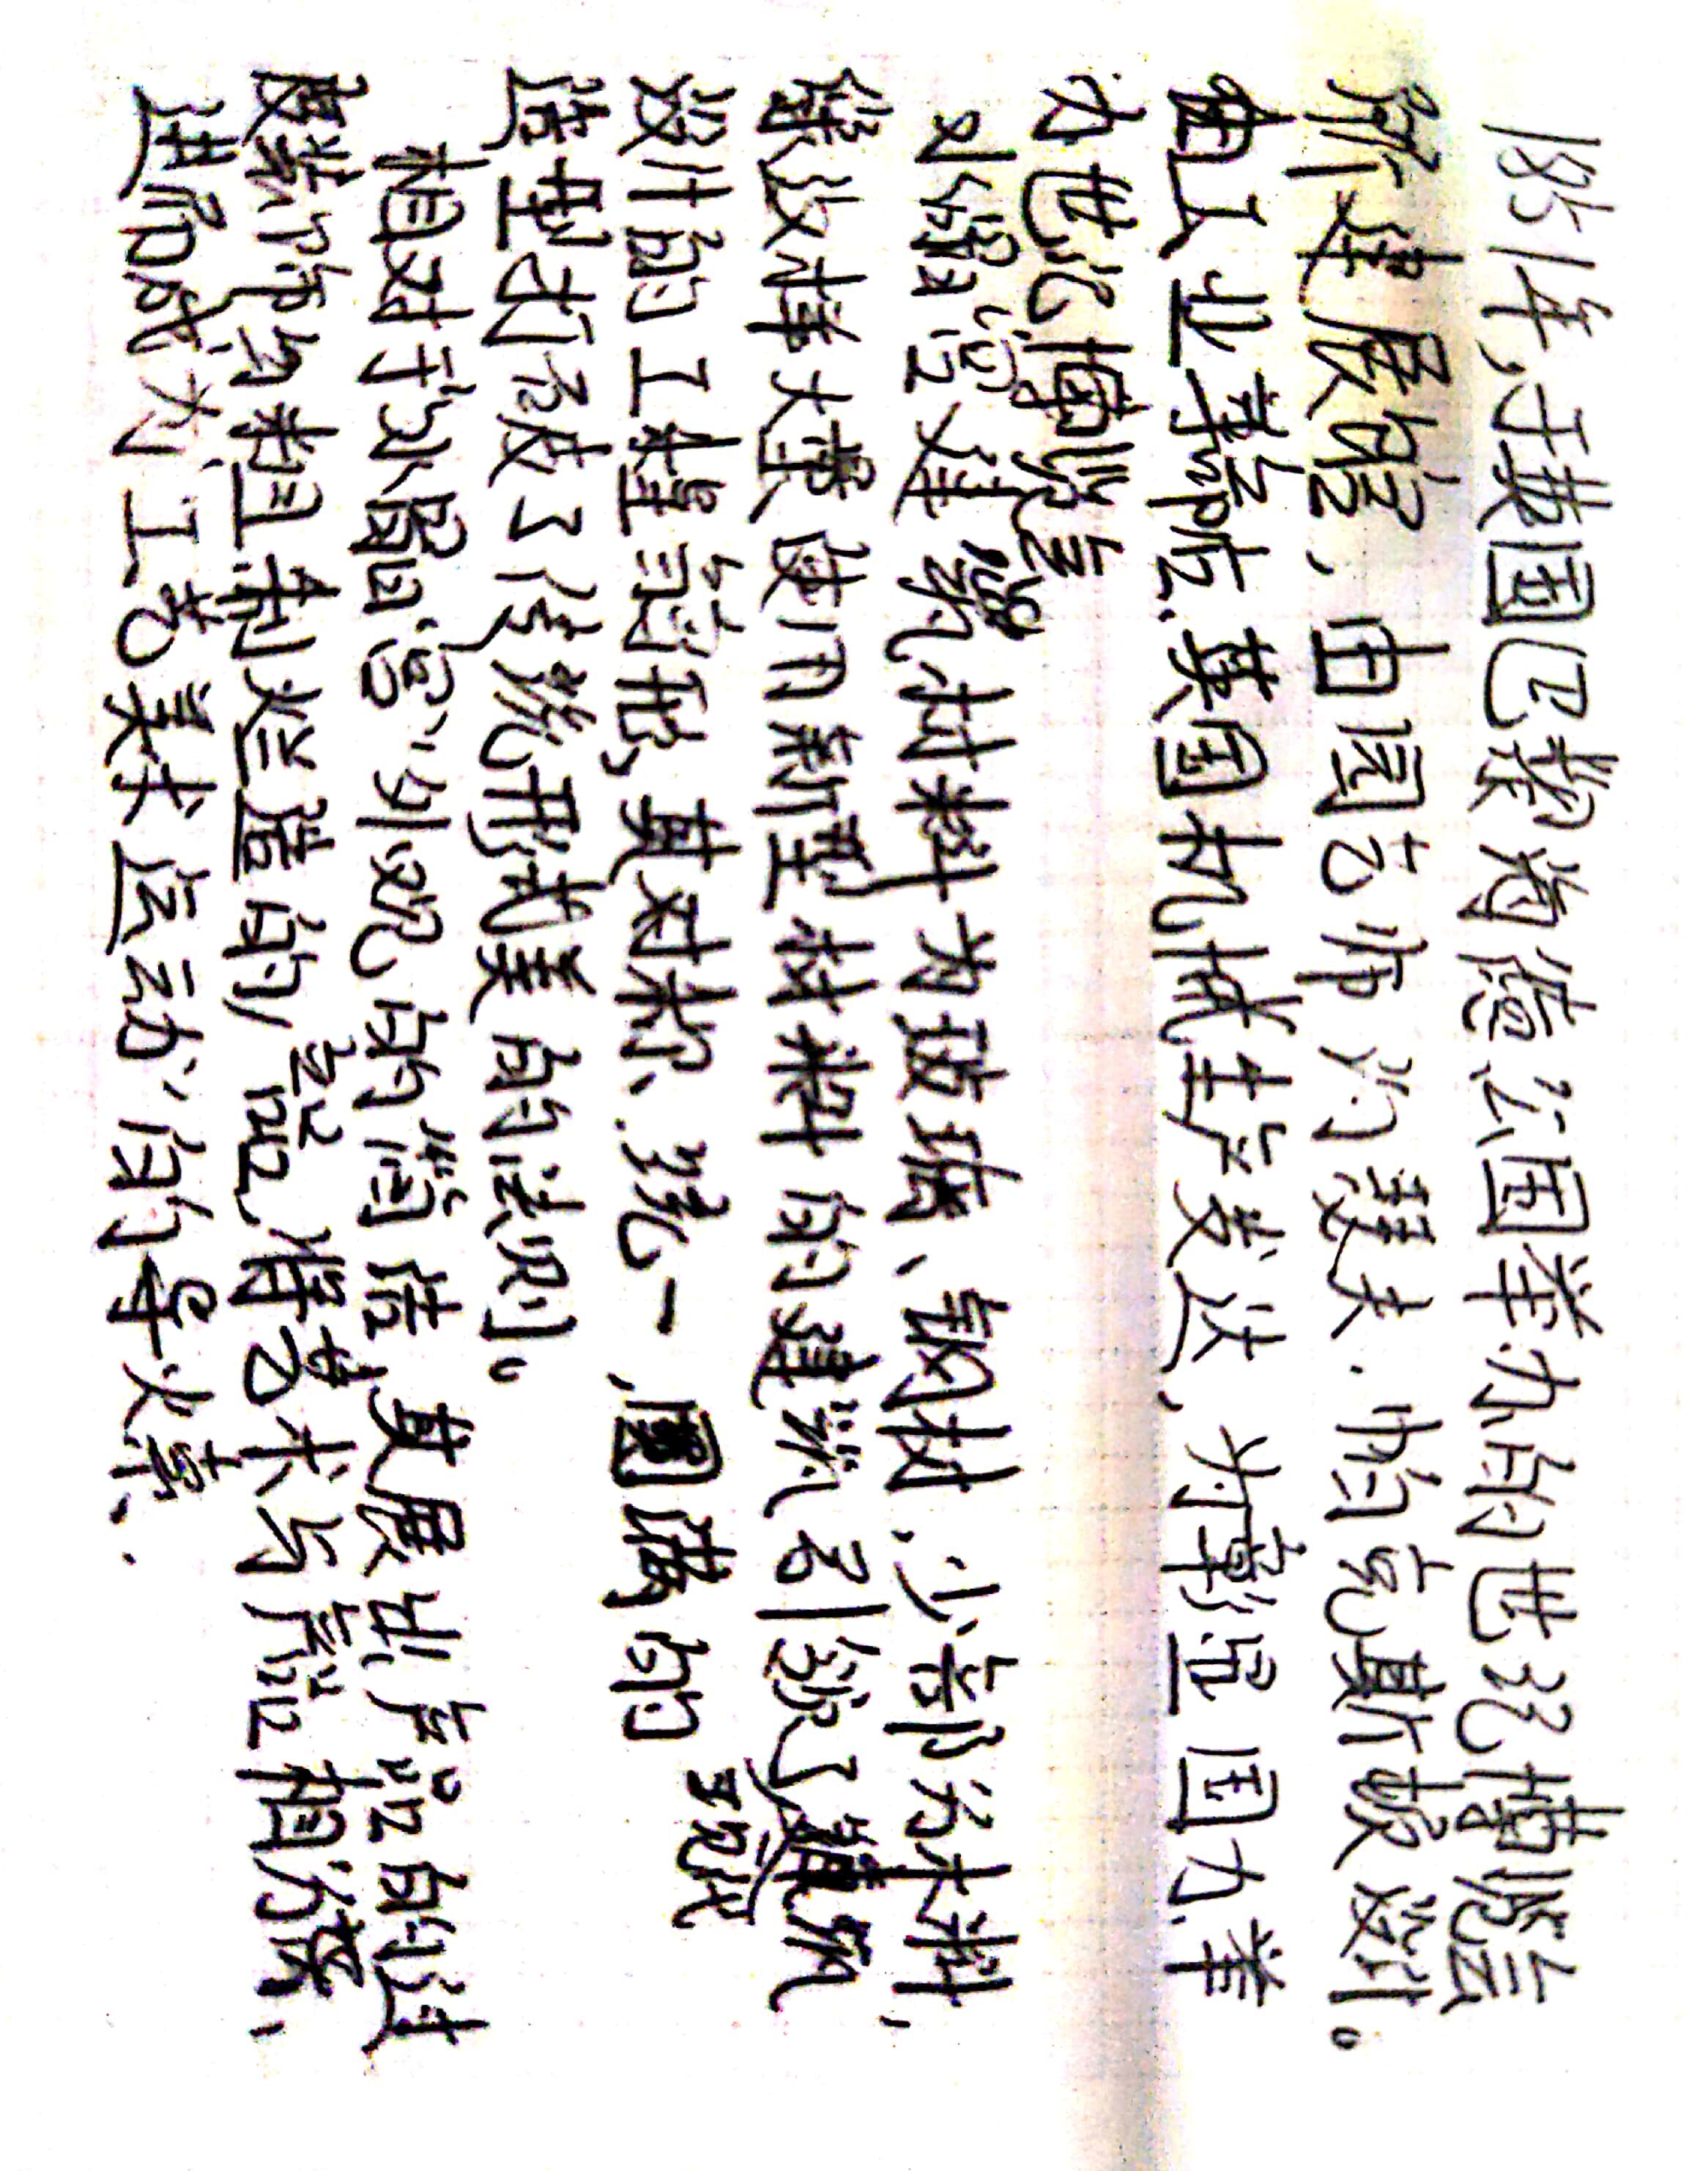 1851年,于英国巴黎海德公园举办的世纪博览会
所建展馆,由园艺师约瑟夫.帕克斯顿设计。
由工业革命后,英国机械生产发达,为彰显国力,举
办世纪博览会
水晶宫建筑材料为玻璃、钢材,少部分木料,
缘故样大量使用新型材料的建筑引领了建筑
设计的工程流程,其对称、统一,圆满的 现代
造型打破了传统形式美的法则。
相对于“水晶宫”外观的简洁,其展出产品的过
度装饰与粗制烂造的产品,将艺术与产品相分离、
进而成为“工艺美术运动”的导火索.